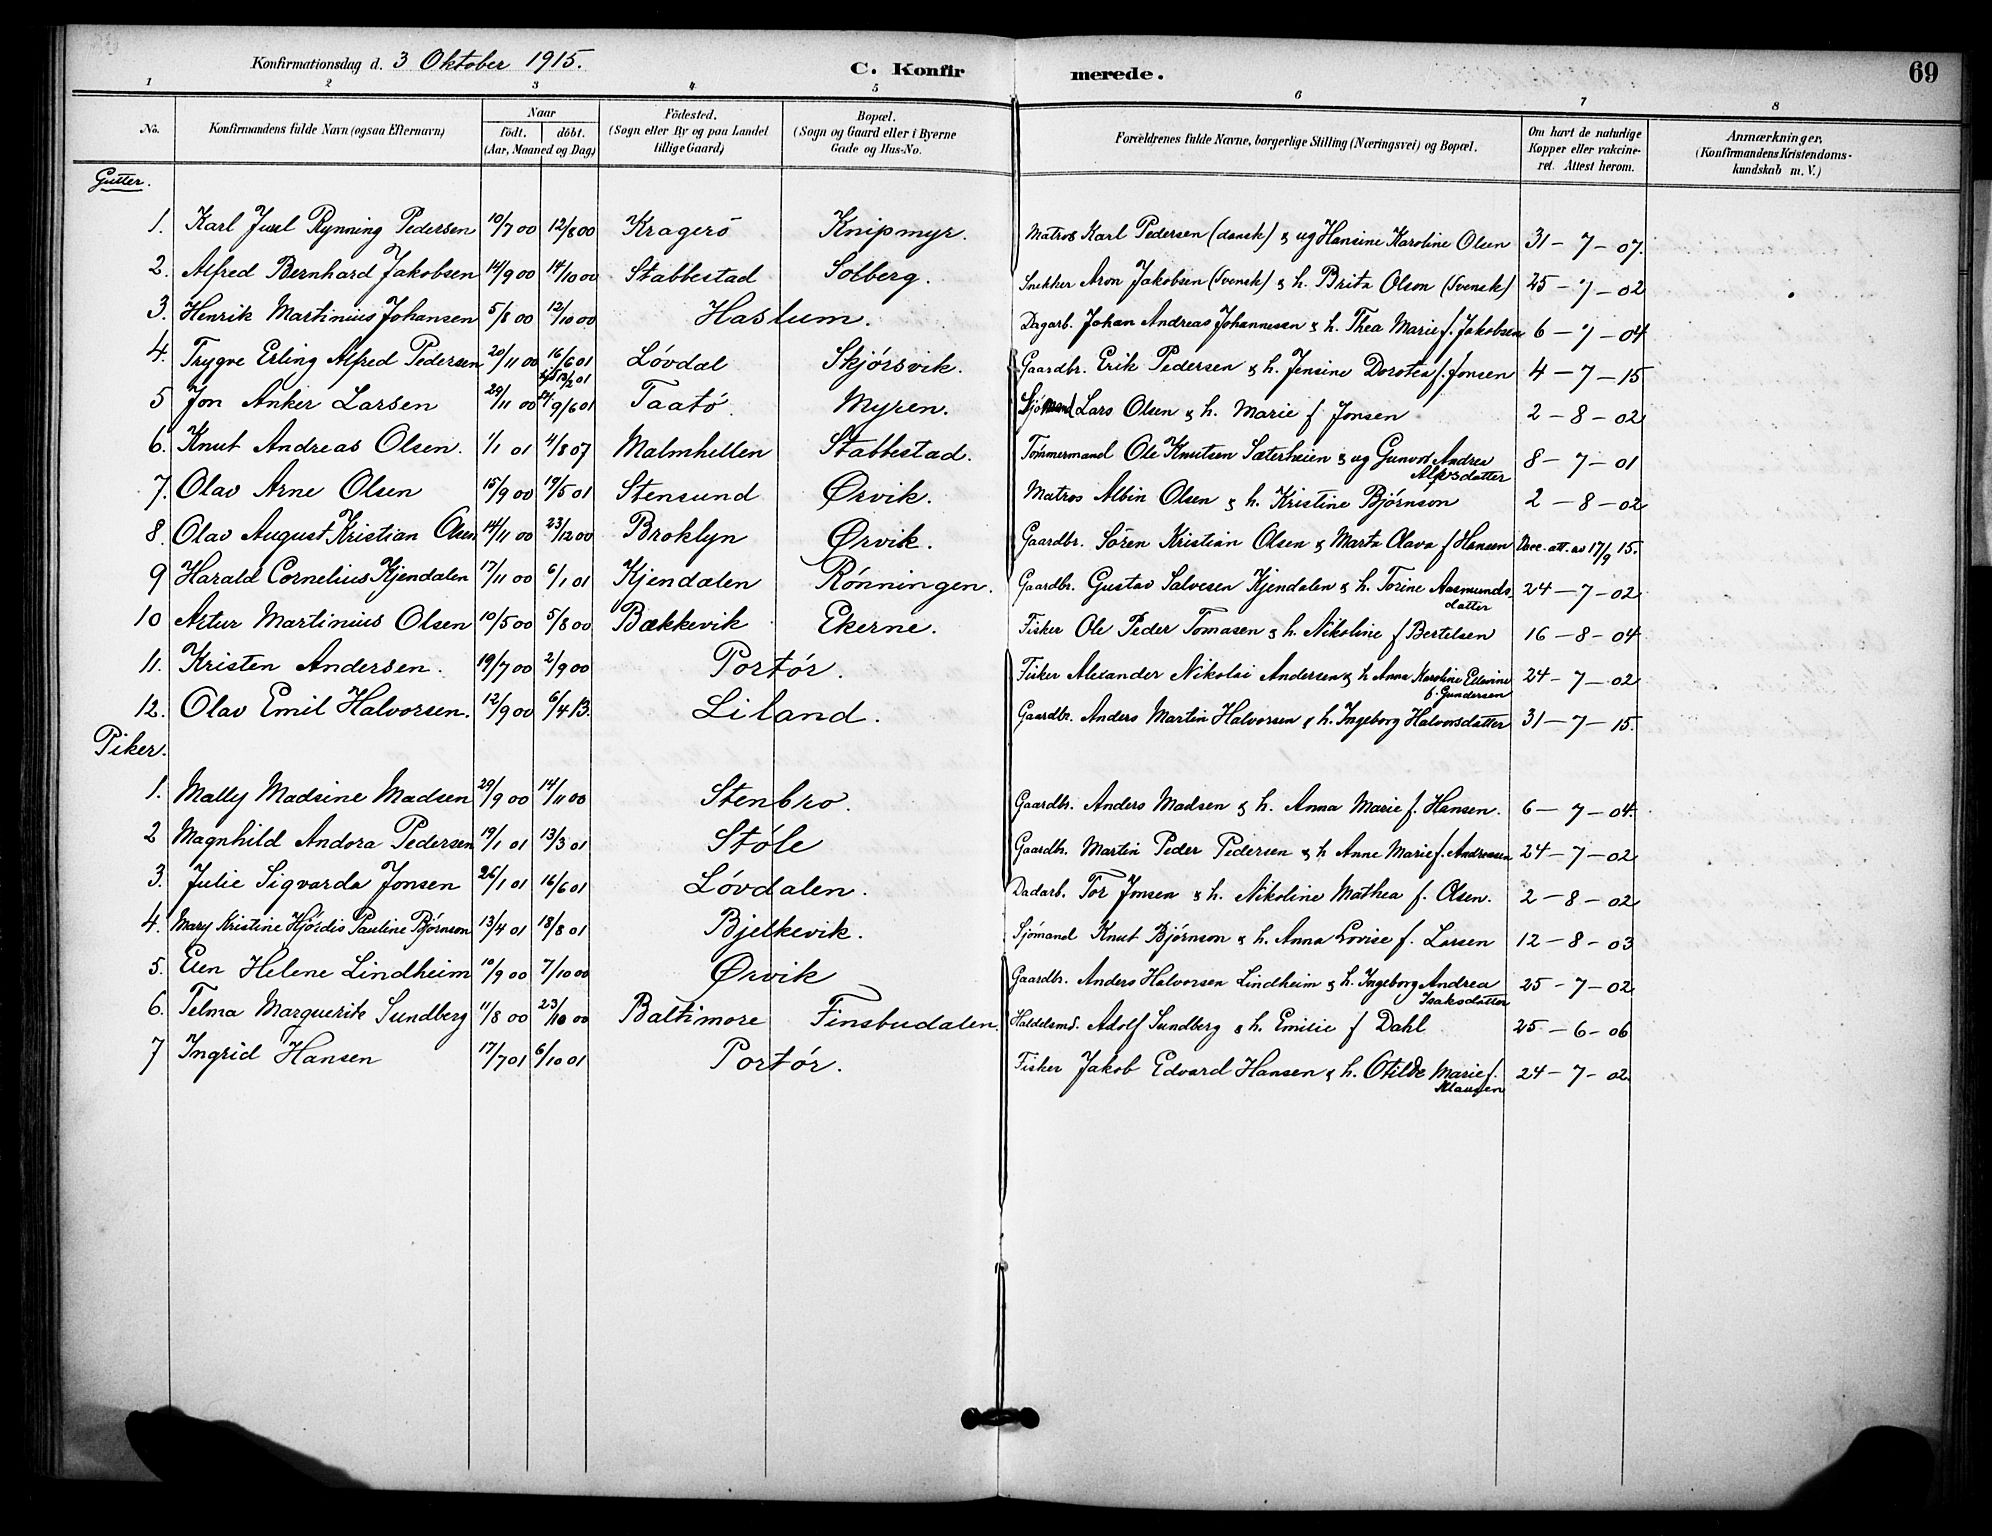 Konfirmationsdag d. 3 Oktober 1915.
C. Konfirmerede.
69
1 2 3 4 5 6 7 8
No. Konfirmandens fulde Navn (ogsaa Efternavn) Naar født. døbt. (Aar, Maaned og Dag) Fødested. (Sogn eller By og paa Landet tillige Gaard) Bopæl. (Sogn og Gaard eller i Byerne Gade og Hus-No. Forældrenes fulde Navne, borgerlige Stilling (Næringsvei) og Bopæl. Om havt de naturlige Kopper eller vakcineret. Attest herom. Anmærkninger, (Konfirmandens Kristendomskundskab m. V.)
Gutter.
1. Karl Juel Rynning Pedersen 10/7 00 12/8 00 Kragerö Knipmyr. Matros Karl Pedersen (dansk) & ug Hansine Karoline Olsen 31-7-07.
2. Alfred Bernhard Jakobsen 14/9 00 14/10 00 Stabbestad Solberg. Snekker Aron Jakobsen (Svensk) & h. Brita Olson (Svensk) 25-7-02
3. Henrik Martinius Johansen 5/8 00 12/10 00 Haslum. Dagarb. Johan Andreas Johannesen & h. Thea Marie f. Jakobsen 6-7-04
4. Trygve Erling Alfred Pedersen 20/11 00 16/6 01 Lövdal Skjörsvik. Gaardbr. Erik Pedersen & h. Jensine Dorotea f. Jonsen 4-7-15
5 Jon Anker Larsen 29/11 00 9/6 01 Taatö. Myren. Sjömand Lars Olsen & h. Marie f Jonsen 2-8-02
6. Knut Andreas Olsen. 1/1 01 4/8 07 Malmhellen Stabbestad. Tömmermand Ole Knutsen Sæterheien & ug Gunvor Andrea Alfsdatter 8-7-01
7. Olav Arne Olsen 15/9 00 19/5 01 Stensund Ørvik. Matros Albin Olsen & h. Kristine Bjørnson 2-8-02
8. Olav August Kristian Olsen 14/11 00 23/12 00 Broklyn Ørvik. Gaardbr. Sören Kristian Olsen & Marta Olava f Hansen att. av 17/9 15.
9 Harald Cornelius Kjendalen 17/11 00 6/1 01 Kjendalen Rönningen. Gaardbr. Gustav Salvesen Kjendalen & h. Torine Aasmundsdatter 24-7-02
10 Artur Martinius Olsen 10/5 00 5/8 00 Bækkevik Ekerne. Fisker Ole Peder Tomasen & h. Nikoline f Bertelsen 16-8-04
11. Kristen Andersen. 19/7 00 2/9 00 Portör. Fisker Alexander Nikolai Andersen & h Anna Karoline Edvine f. Gundersen 24-7-02
12. Olav Emil Halvorsen. 12/9 00 6/4 13. Liland. Gaardbr. Anders Martin Halvorsen & h. Ingeborg Halvorsdatter 31-7-15.
Piker.
1. Mally Madsine Madsen 29/9 00 14/11 00 Stenbro. Gaardbr. Anders Madsen & h. Anna Marie f. Hansen. 6-7-04.
2 Magnhild Andora Pedersen 19/1 01 13/3 01 Støle Gaardbr. Martin Peder Pedersen & h Anne Marie f. Andresen 24-7-02
3. Julie Sigvarda Jonsen 26/1 01 16/6 01 Lövdalen. Dadarb. Tor Jonsen & h. Nikoline Mathea f. Olsen. 2-8-02
4. Mary Kristine Hjördis Pauline Björnson 13/4 01 18/8 01 Bjelkevik. Sjömand Knut Bjørnson & h. Anna Lovise f. Larsen 12-8-03
5. Elen Helene Lindheim 10/9 00 7/10 00 Ørvik Gaardbr. Anders Halvorsen Lindheim & h. Ingeborg Andrea Isaksdatter 25-7-02
6. Telma Marguerite Sundberg 11/8 00 23/10 00 Baltimore Finsbudalen. Haldelsmd. Adolf Sundberg & h. Emilie f Dahl 25-6-06
7 Ingrid Hansen 17/7 01 6/10 01 Portör. Fisker Jakob Edvard Hansen & h. Otilde Marie f. Klausen 24-7-02.